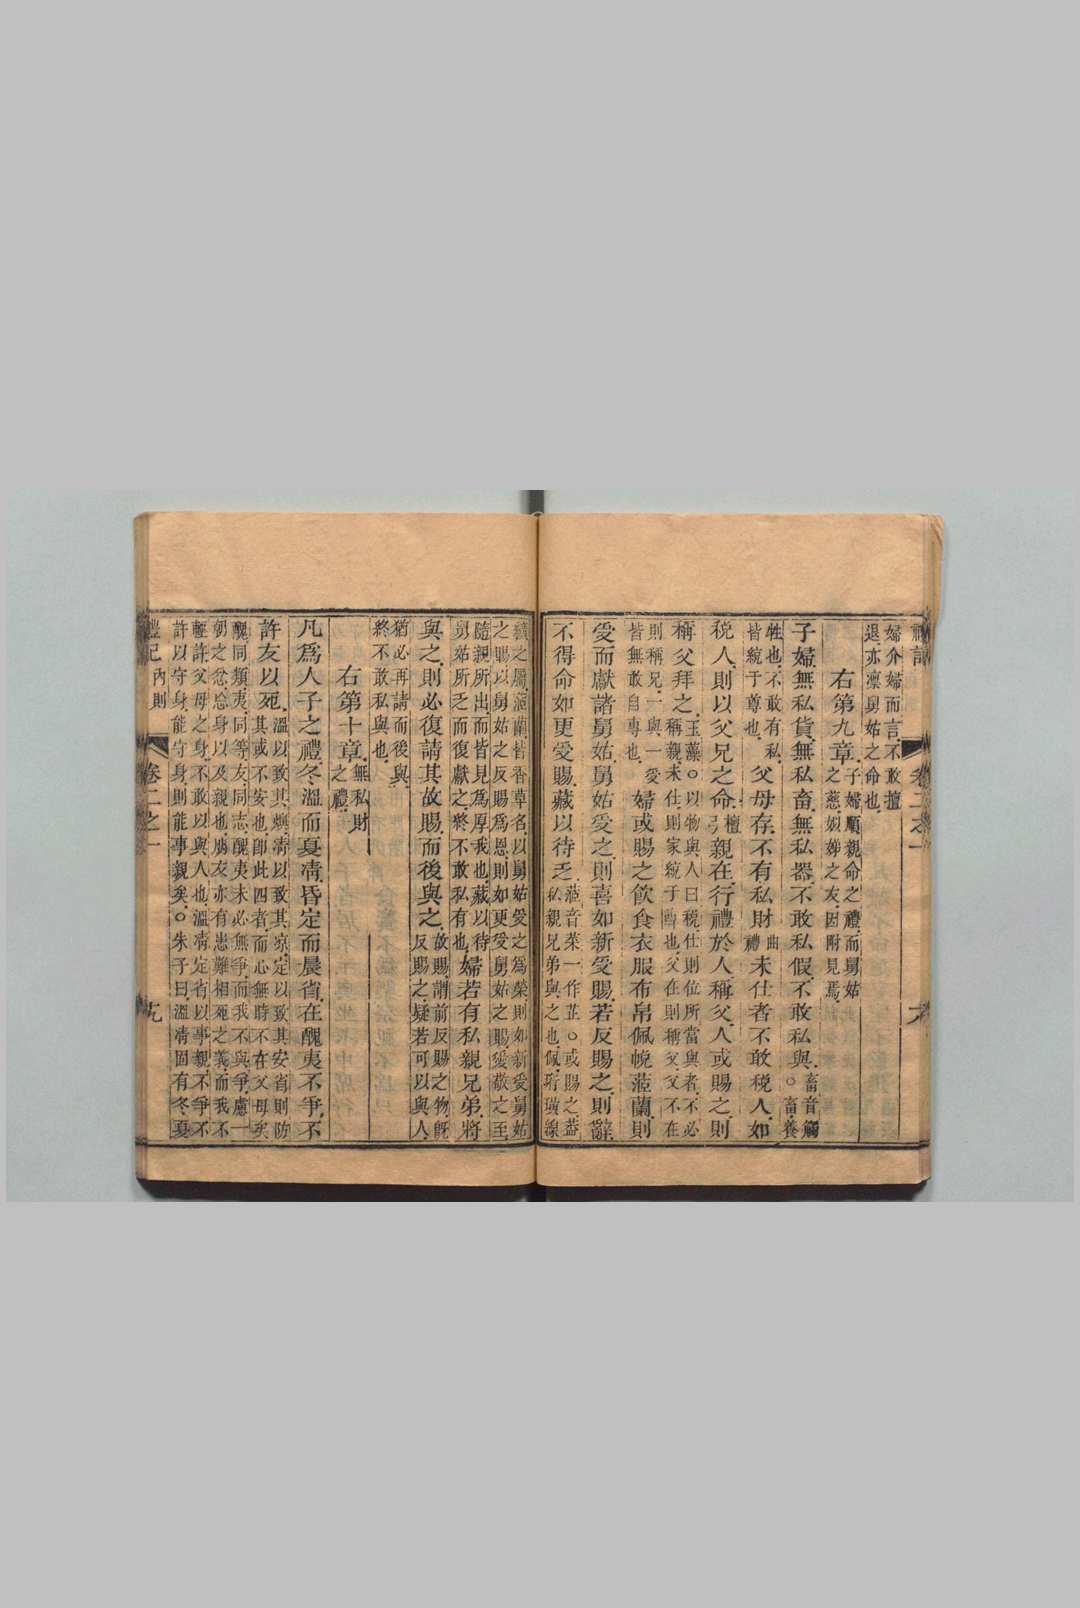 婦介婦而言不敢擅
退亦凜舅姑之命也
右第九章子婦順親命之禮而舅姑
之慈娣姒之友因附見焉
子婦無私貨無私畜無私器不敢私假不敢私與畜音觸○畜養
牲也不敢有私
皆統于尊也父母存不有私財曲禮未仕者不敢稅人如
稅人則以父兄之命檀弓親在行禮於人稱父人或賜之則
稱父拜之玉藻○以物與人曰稅仕則位所當與者不必
稱親未仕則家統于尊也父在則稱父父不在
則稱兄一與一受
皆無敢自專也婦或賜之飲食衣服布帛佩帨茝蘭則
受而獻諸舅姑舅姑受之則喜如新受賜若反賜之則辭
不得命如更受賜藏以待乏茝音茱一作芷○或賜之蓋
私親兄弟與之也佩珩璜
之屬茝蘭皆香草名以舅姑受之為榮則如新受舅姑
之賜以舅姑之反賜爲恩則如更受舅姑之賜
隨親所出而皆見爲厚我也藏以待
舅姑所乏而復獻之終不敢私有也婦若有私親兄弟將
與之則必復請其故賜而後與之故賜謂前反賜之物旣
反賜之疑若可以與人
猶必再請而後與
終不敢私與也
右第十章無私財
之禮
凡爲人子之禮冬溫而夏凊昏定而晨省在醜夷不爭不
許友以死溫以致其燠凊以致其涼定以致其安省則防
其或不安也卽此四者而心無時不在父母矣
醜同類夷同等友同志醜夷未必無爭而我不與爭慮一
朝之忿忘身以及親也朋友亦有患難相死之義而我不
輕許父母之身不敢以與人也溫凊定省以事親不爭不
許以守身能守身則能事親矣○朱子曰溫凊固有冬夏
禮記 內則
卷二之一